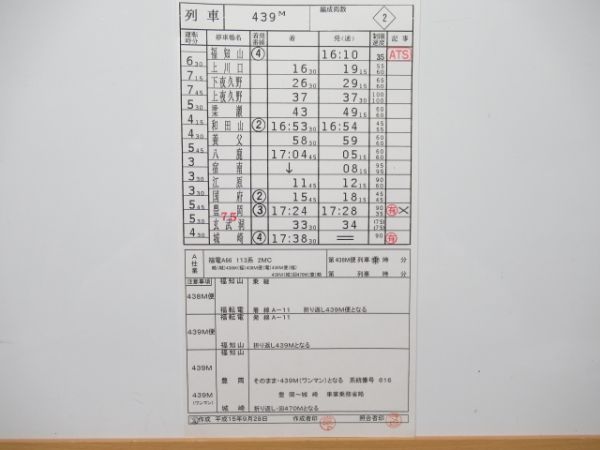 列車 439M 編成両数 2
運転時分 停車場名 着発番線 着 発(通) 制限速度 記事
福知山 ④ 16:10 35 ATS
6 30 上川口 16 30 19 15 55 60
7 15 下夜久野 26 30 29 15
7 15 上夜久野 37 37 30 100 100
5 30 梁瀬 43 49 15
4 15 和田山 ② 16:53 30 16:54 45 55
4 30 養父 58 30 59
5 45 八鹿 17:04 45 05 15
3 宿南 ↓ 08 15
3 江原 11 45 12 15
3 30 国府 ② 15 45 18 45
5 30 豊岡 ③ 17:24 17:28 ×
5 30 玄武洞 75 33 30 34 (75)
4 30 城崎 ④ 17:38 30 90
A仕業 福電A66 113系 2M'C 第438M便 列車 時 分
第 列車 時 分
注意事項 福知山 乗継
438M便
福知電 着線 A-11 折り返し439M便となる
福知電 発線 A-11
439M便
福知山 折り返し439Mとなる
439M
豊岡 そのまま・439M(ワンマン)となる 系統番号 616
439M 豊岡~城崎 車掌乗務省略
(ワンマン)
城崎 折り返し・回470Mとなる
作成 平成15年9月28日 作成者印 照合者印